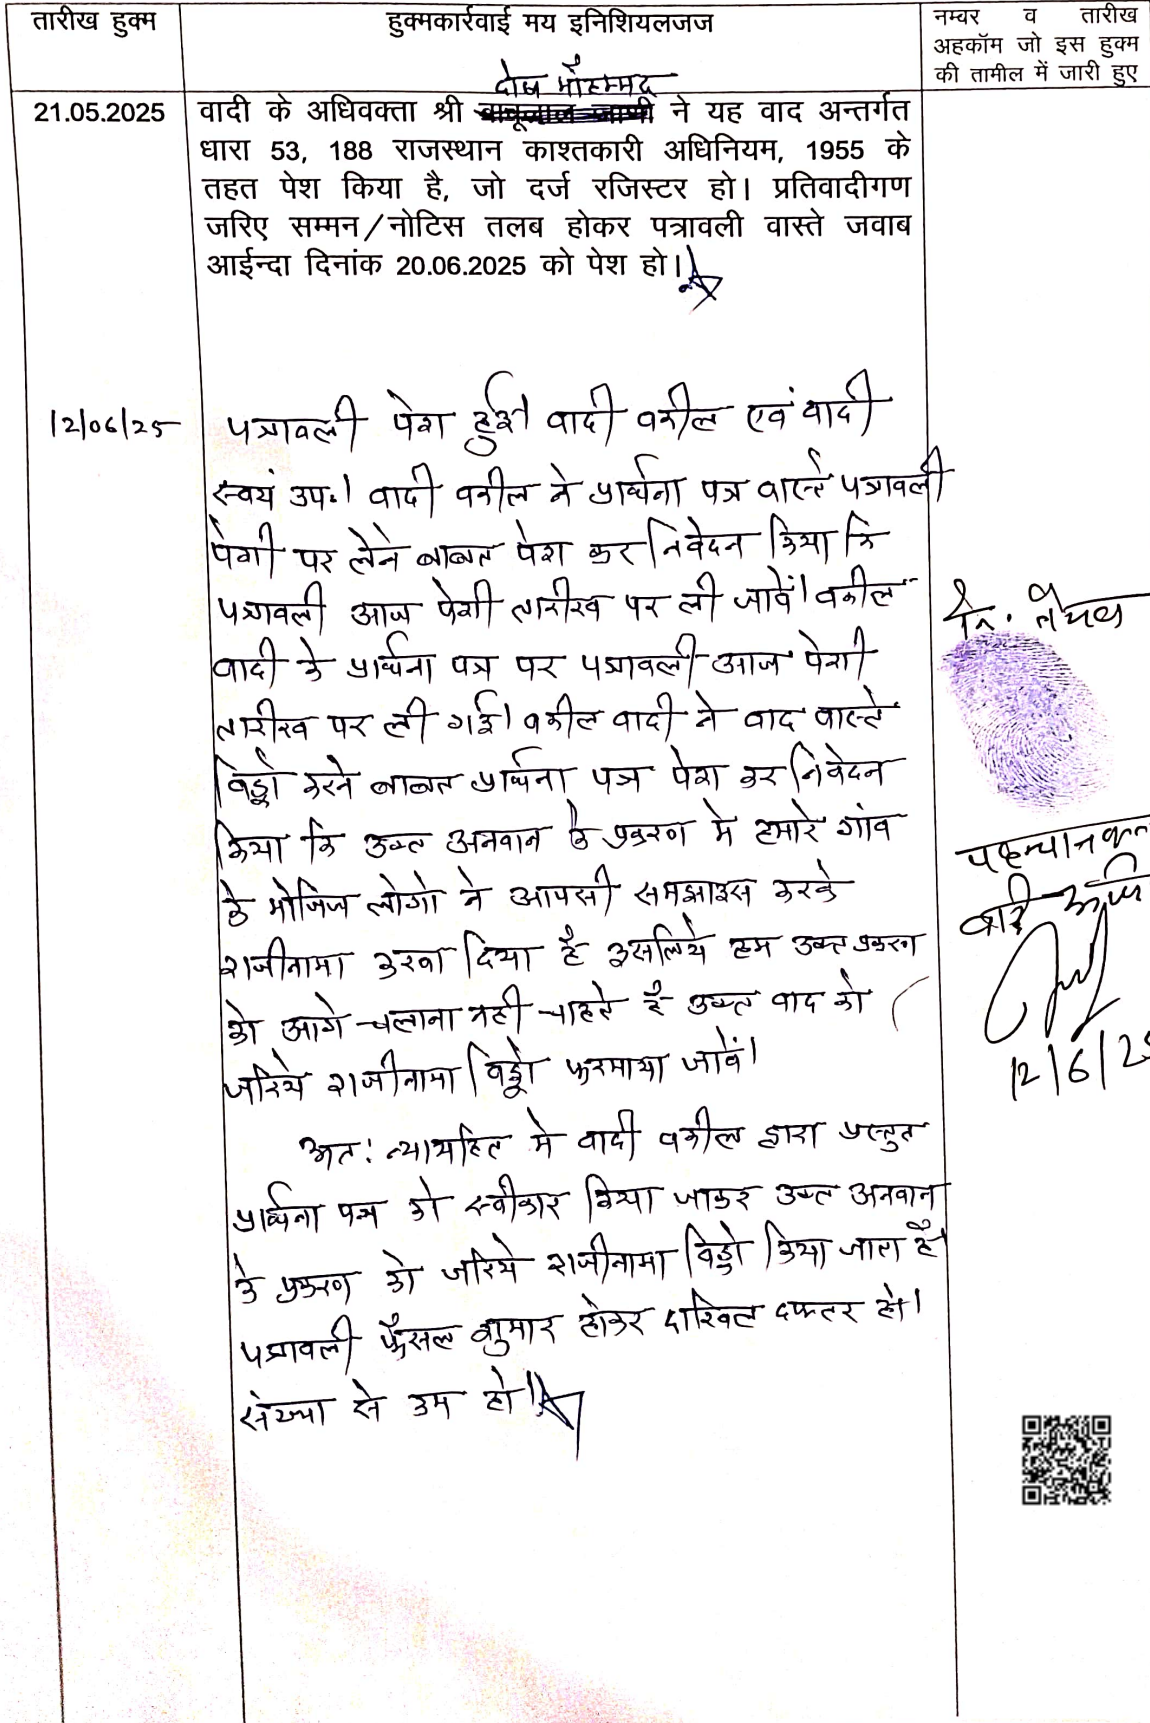 तारीख हुक्म
हुक्मकार्रवाई मय इनिशियलजज
नम्बर व तारीख
अहकॉम जो इस हुक्म
की तामील में जारी हुए
मोहम्मद
21.05.2025
वादी के अधिवक्ता श्री ने यह वाद अन्तर्गत
धारा 53, 188 राजस्थान काश्तकारी अधिनियम, 1955 के
तहत पेश किया है, जो दर्ज रजिस्टर हो। प्रतिवादीगण
जरिए सम्मन/नोटिस तलब होकर पत्रावली वास्ते जवाब
आईन्दा दिनांक 20.06.2025 को पेश हो।
12/06/25
पत्रावली पेश हुई। वादी वकील एवं वादी
स्वयं उप.। वादी वकील ने प्रार्थना पत्र वास्ते पत्रावली
पेशी पर लेने बाबत पेश कर निवेदन किया कि
पत्रावली आज पेशी तारीख पर ली जावें। वकील
वादी के प्रार्थना पत्र पर पत्रावली आज पेशी
तारीख पर ली गई। वकील वादी ने वाद वास्ते
विड्रो करने बाबत प्रार्थना पत्र पेश कर निवेदन
किया कि उक्त अनवान के प्रकरण मे हमारे गांव
के मोजिज लोगो ने आपसी समझाइस करके
राजीनामा करवा दिया है इसलिये हम उक्त प्रकरण
को आगे चलाना नही चाहते है उक्त वाद को
जरिये राजीनामा विड्रो फरमाया जावें।
अत: न्यायहित मे वादी वकील द्वारा प्रस्तुत
प्रार्थना पत्र को स्वीकार किया जाकर उक्त अनवान
के प्रकरण को जरिये राजीनामा विड्रो किया जाता है
पत्रावली फैसल शुमार होकर दाखिल दफ्तर हो।
संख्या से कम हो।
नि.
12/6/25